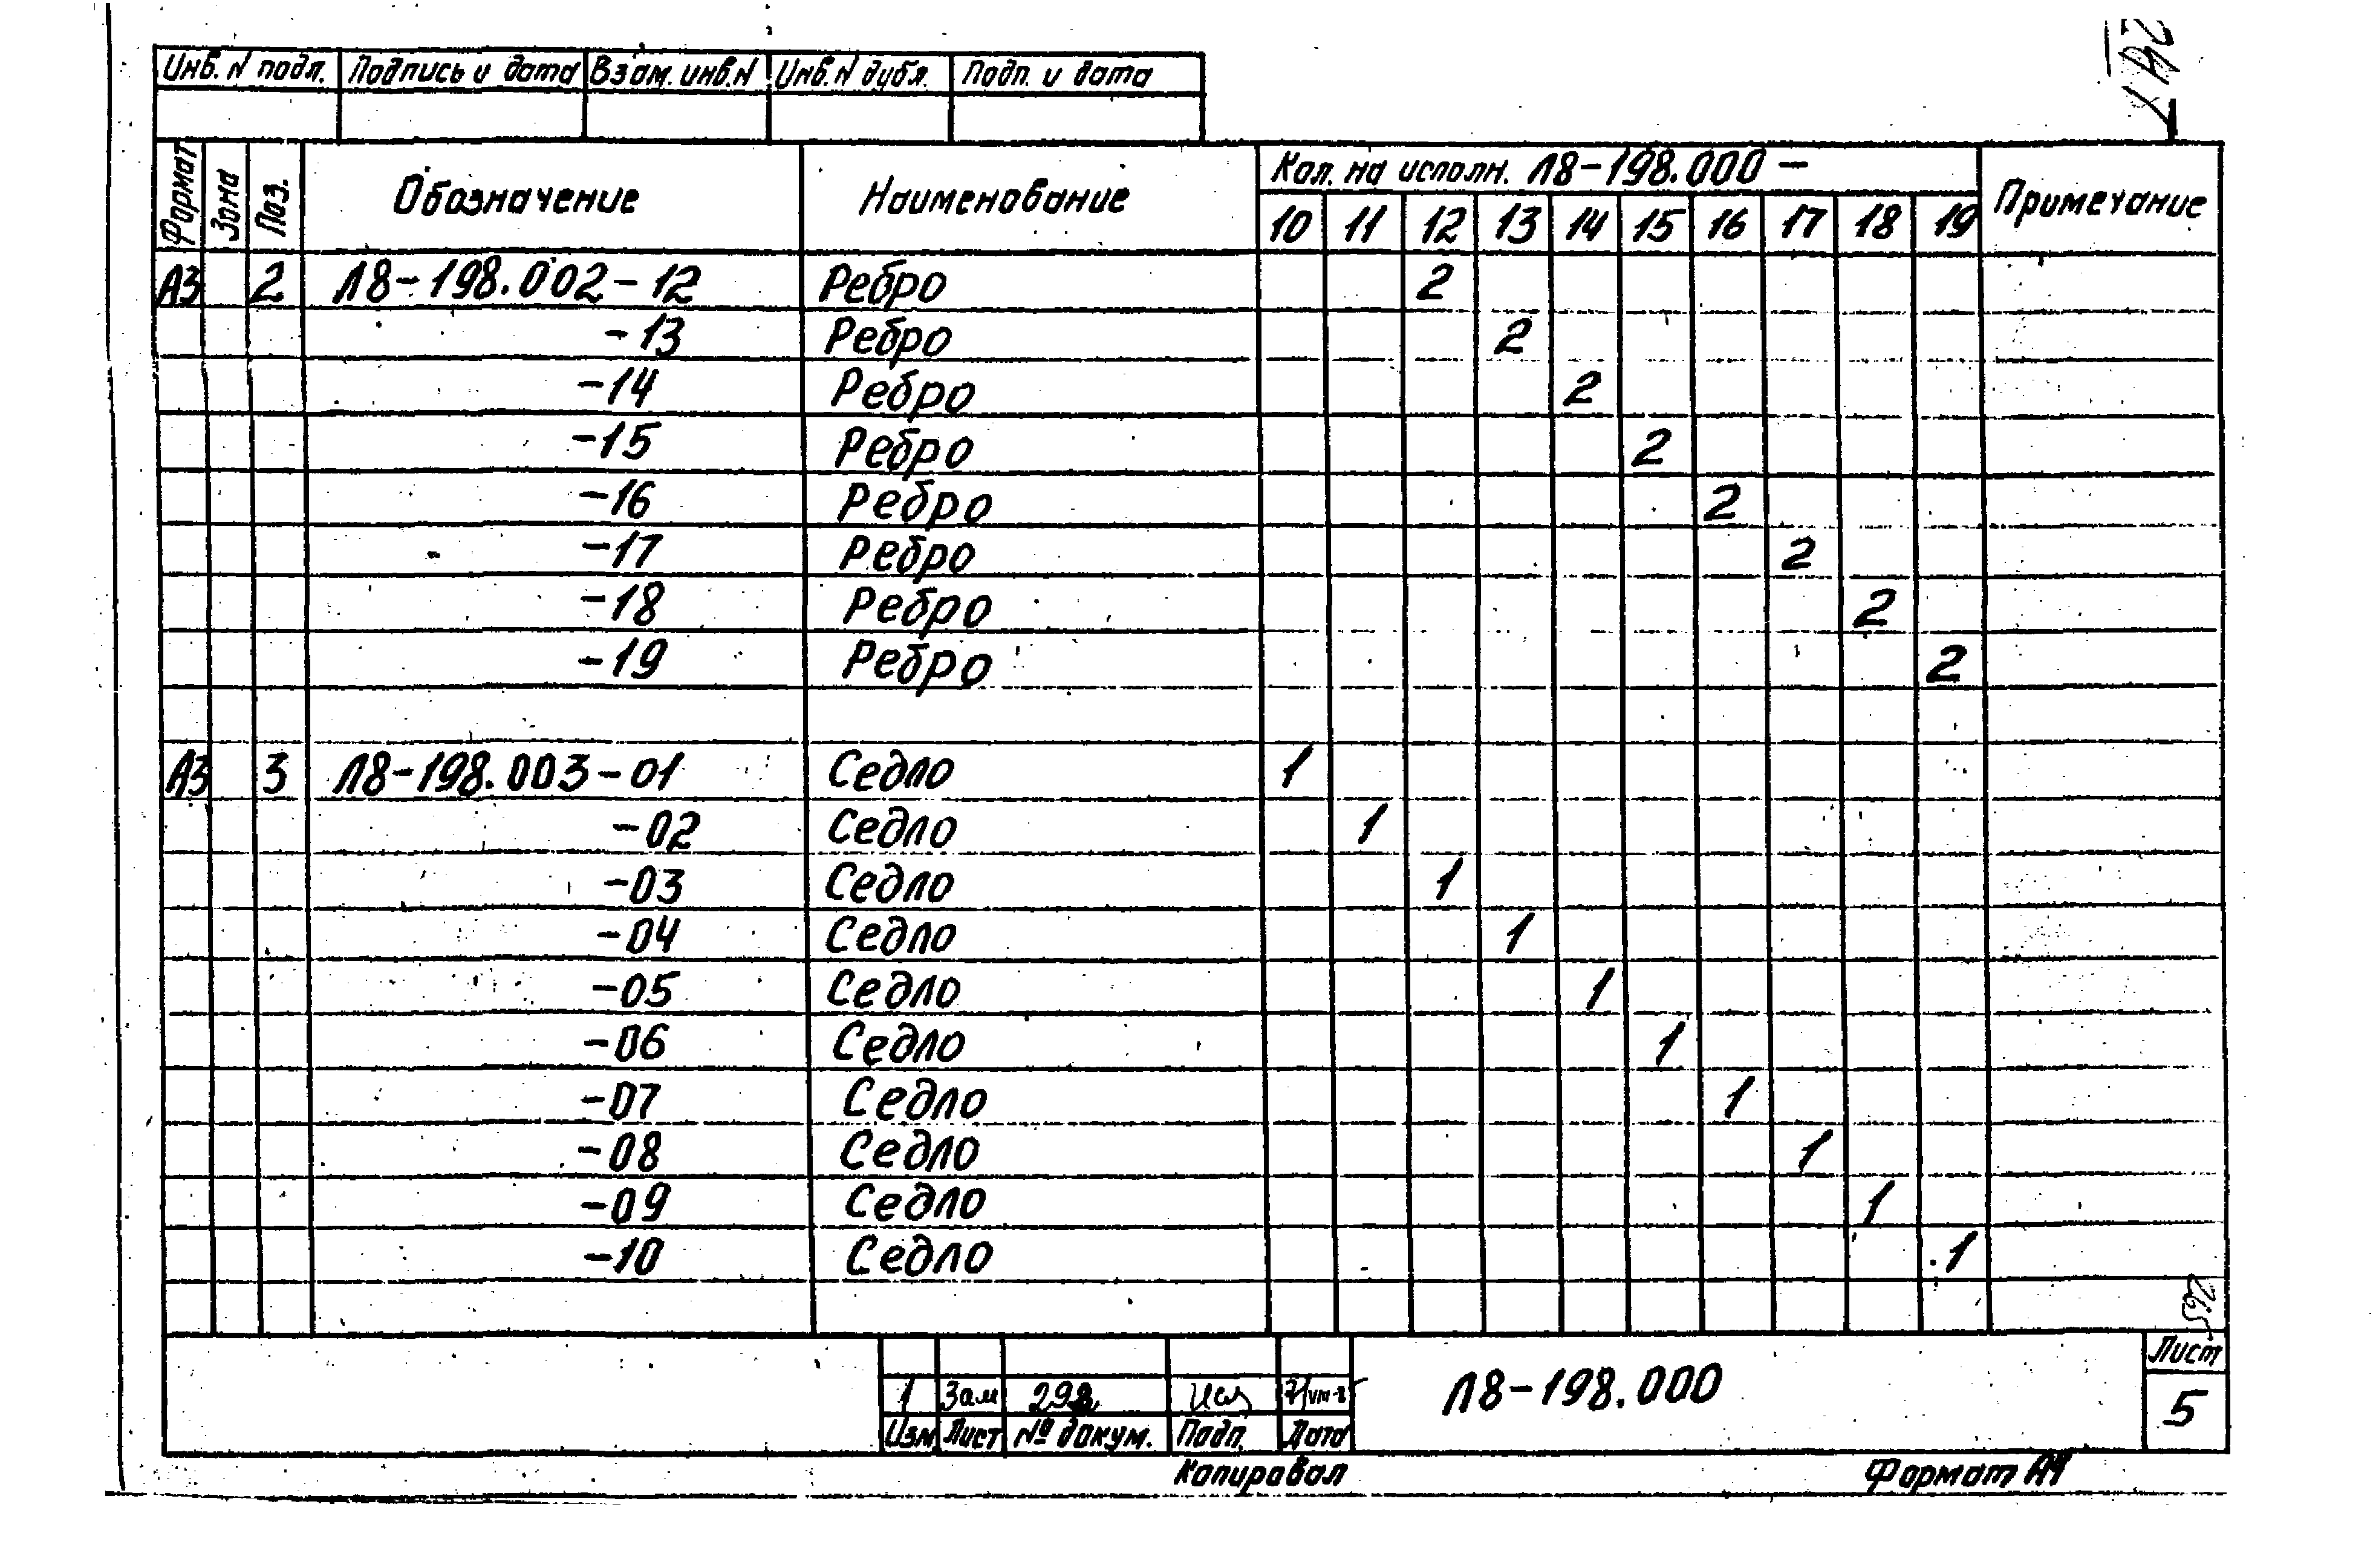 Инв. N подл. Подпись и дата Взам. инв. N Инв. N дубл. Подп. и дата
Формат Зона Поз. Обозначение Наименование Кол. на исполн. Л8-198.000 — Примечание
10 11 12 13 14 15 16 17 18 19
А3 2 Л8-198.002-12 Ребро 2
-13 Ребро 2
-14 Ребро 2
-15 Ребро 2
-16 Ребро 2
-17 Ребро 2
-18 Ребро 2
-19 Ребро 2
А3 3 Л8-198.003-01 Седло 1
-02 Седло 1
-03 Седло 1
-04 Седло 1
-05 Седло 1
-06 Седло 1
-07 Седло 1
-08 Седло 1
-09 Седло 1
-10 Седло 1
1 Зам
Изм Лист № докум. Подп. Дата
Л8-198.000
Лист
5
Копировал Формат А4